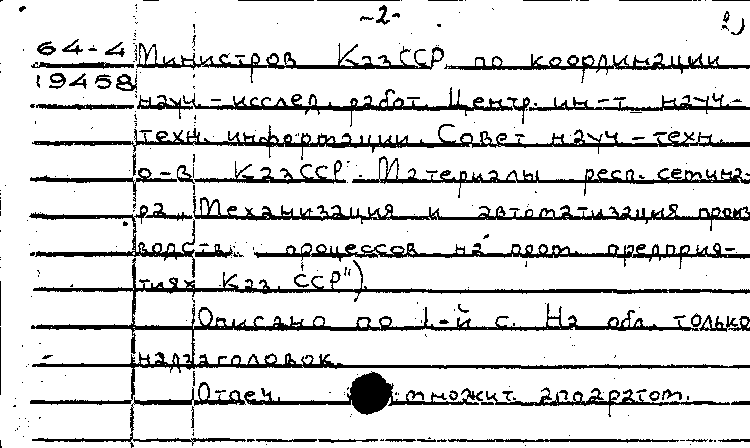 -2-
2)
64-4 Министров КазССР по координации
19458
науч.-исслед. работ. Центр. ин-т науч-
техн. информации. Совет науч-техн.
о-в КазССР. Материалы респ. семина-
ра „Механизация и автоматизация произ
водств. процессов на пром. предприя-
тиях Каз. ССР").
Описано по 1-й с. На обл. только
надзаголовок.
Отпеч. множит. аппаратом.